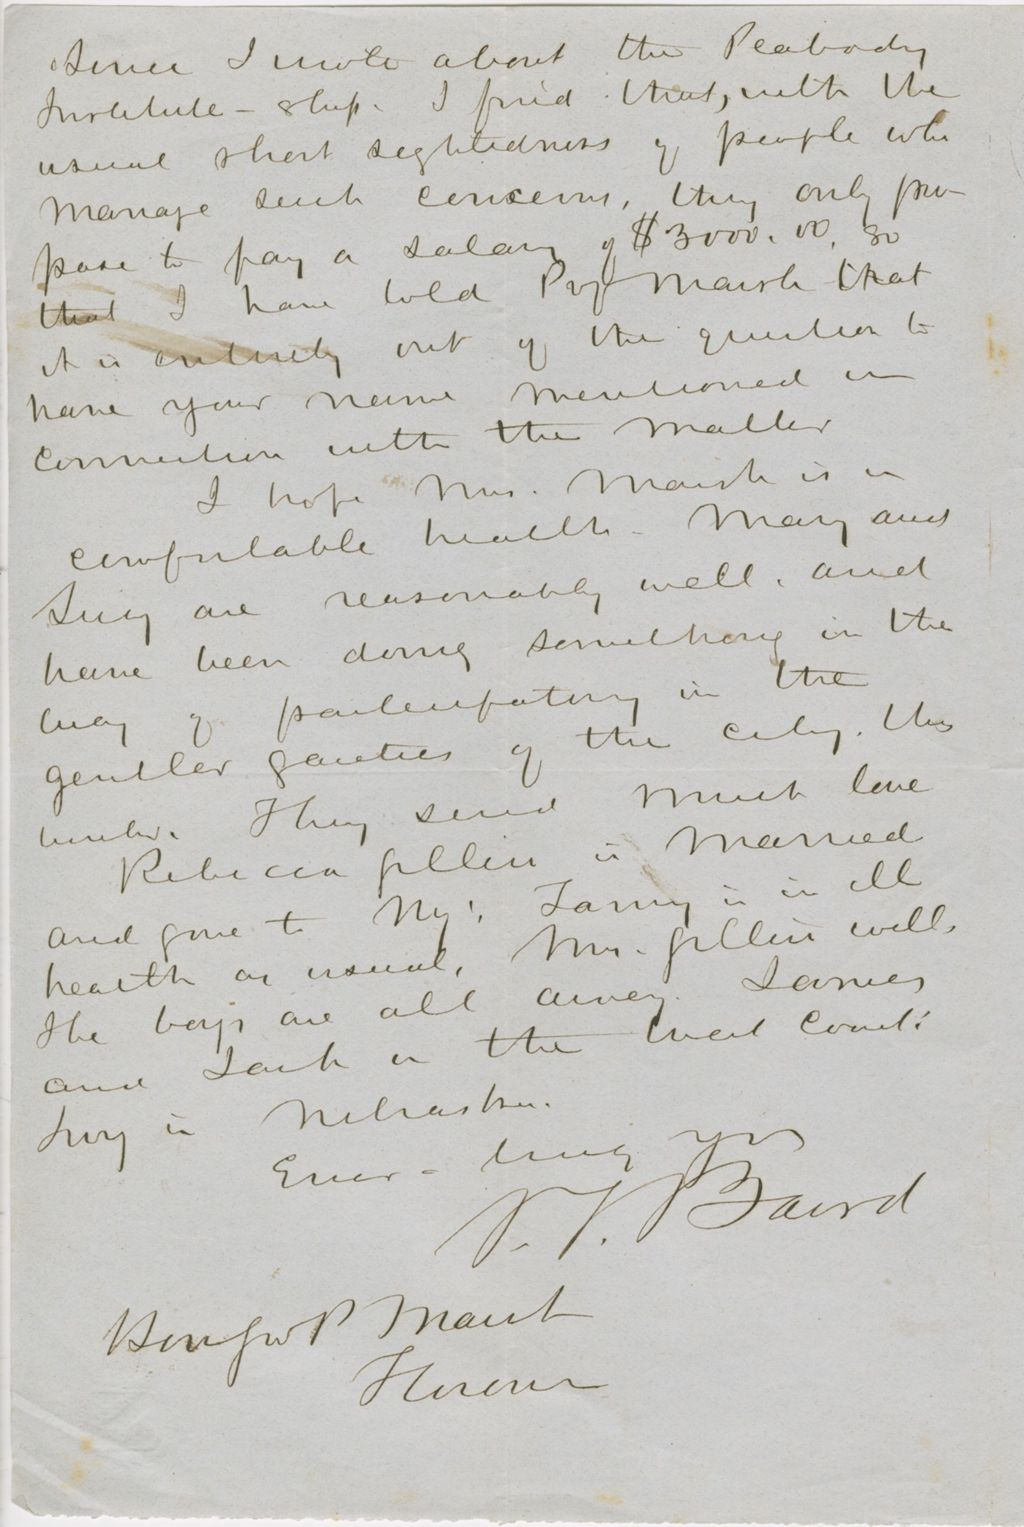 Since I wrote about the Peabody
Institute - ship. I find that, with the
usual short sightedness of people who
manage such concerns, they only pro-
pose to pay a salary of $3000.00, so
that I have told Prof Marsh that
it is entirely out of the question to
have your name mentioned in
connection with the matter
I hope Mrs. Marsh is in
comfortable health. Mary and
Lucy are reasonably well, and
have been doing something in the
way of participating in the
gentler gaieties of the city, this
winter. They send much love
Rebecca Gillis is married
and gone to N.Y. Fanny is in ill
health as usual, Mrs. Gillis well.
The boys are all away. James
and Jack on the west coast:
Ivy in Nebraska.
Ever - truly yrs
S. F. Baird
Hon Geo P Marsh
Florence